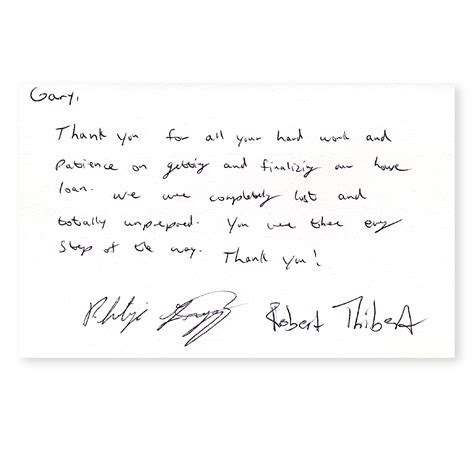 Gary,
Thank you for all your hard work and
Patience on getting and finalizing our home
loan. We were completely lost and
totally unprepared. You were there every
step of the way. Thank you!
Robert Thibert